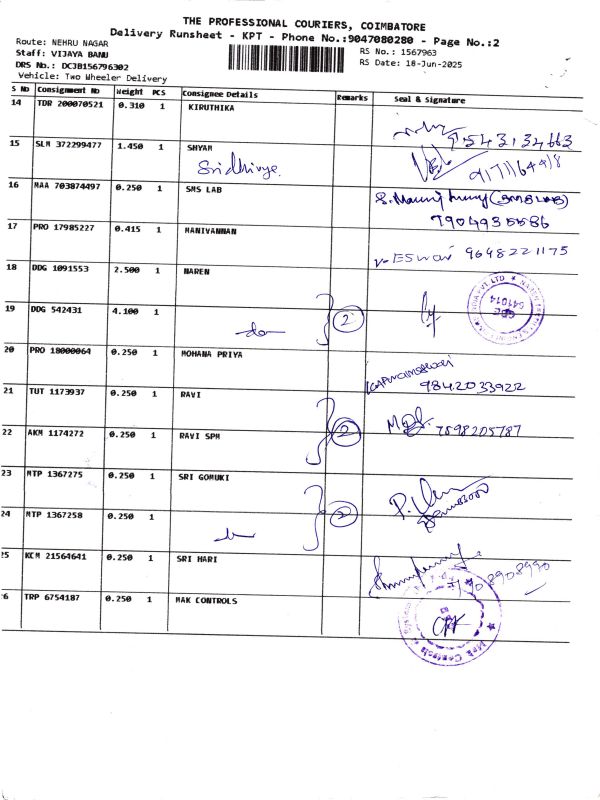 THE PROFESSIONAL COURIERS, COIMBATORE
Delivery Runsheet - KPT - Phone No.:9047080280 - Page No.:2
Route: NEHRU NAGAR
Staff: VIJAYA BANU
DRS No.: DCJB156796302
Vehicle: Two Wheeler Delivery
RS No.: 1567963
RS Date: 18-Jun-2025
S No Consignment No Weight PCS Consignee Details Remarks Seal & Signature
14 TDR 200070521 0.310 1 KIRUTHIKA
9543134663
15 SLM 372299477 1.450 1 SHYAM
Sridhivya
16 MAA 703874497 0.250 1 SMS LAB (SMS LAB)
7904935586
17 PRO 17985227 0.415 1 MANIVANNAN
Eswari 9698221175
18 DDG 1091553 2.500 1 NAREN
19 DDG 542431 4.100 1 2
do
641014
20 PRO 18000064 0.250 1 MOHANA PRIYA
9842033922
21 TUT 1173937 0.250 1 RAVI
22 AKM 1174272 0.250 1 RAVI SPM 2 7598205787
23 MTP 1367275 0.250 1 SRI GOMUKI
24 MTP 1367258 0.250 1 2
25 KCM 21564641 0.250 1 SRI HARI
26 TRP 6754187 0.250 1 MAK CONTROLS
Mak Controls